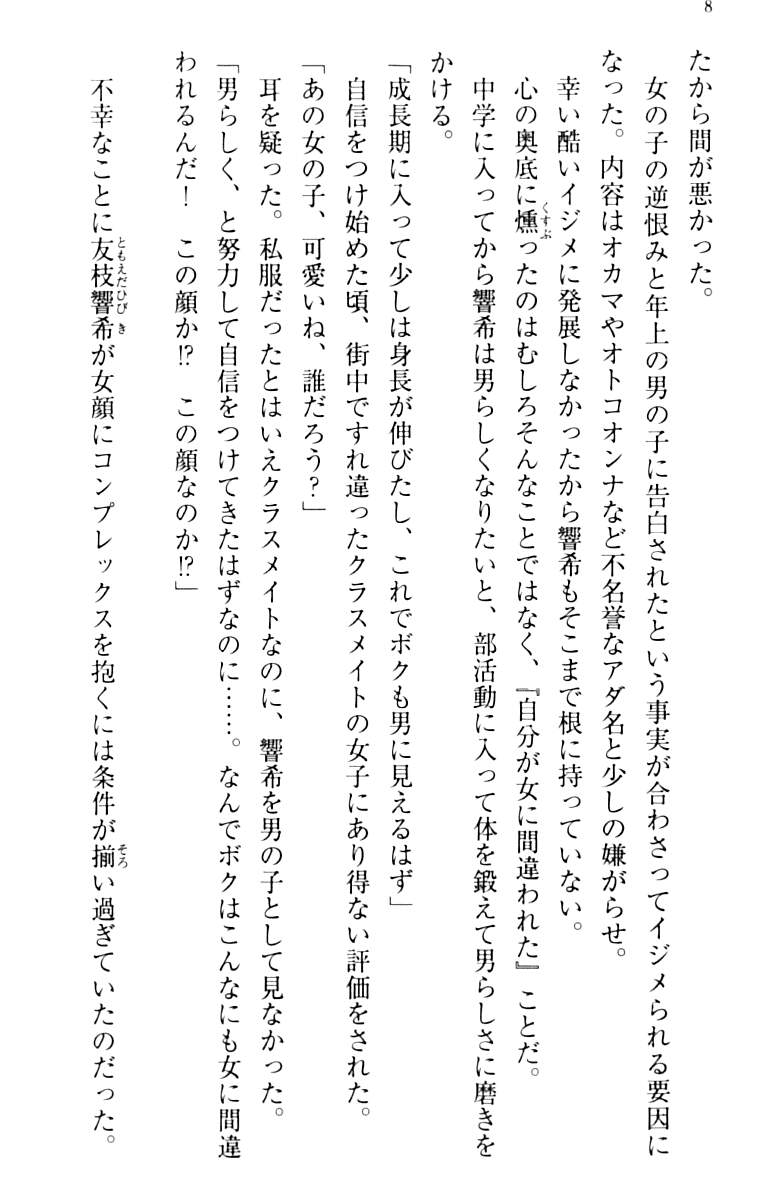 8
たから間が悪かった。
女の子の逆恨みと年上の男の子に告白されたという事実が合わさってイジメられる要因に
なった。内容はオカマやオトコオンナなど不名誉なアダ名と少しの嫌がらせ。
幸い酷いイジメに発展しなかったから響希もそこまで根に持っていない。
心の奥底に燻くすぶったのはむしろそんなことではなく、『自分が女に間違われた』ことだ。
中学に入ってから響希は男らしくなりたいと、部活動に入って体を鍛えて男らしさに磨きを
かける。
「成長期に入って少しは身長が伸びたし、これでボクも男に見えるはず」
自信をつけ始めた頃、街中ですれ違ったクラスメイトの女子にあり得ない評価をされた。
「あの女の子、可愛いね、誰だろう？」
耳を疑った。私服だったとはいえクラスメイトなのに、響希を男の子として見なかった。
「男らしく、と努力して自信をつけてきたはずなのに……。なんでボクはこんなにも女に間違
われるんだ！　この顔か!?　この顔なのか!?」
不幸なことに友枝響希ともえだひびきが女顔にコンプレックスを抱くには条件が揃そろい過ぎていたのだった。